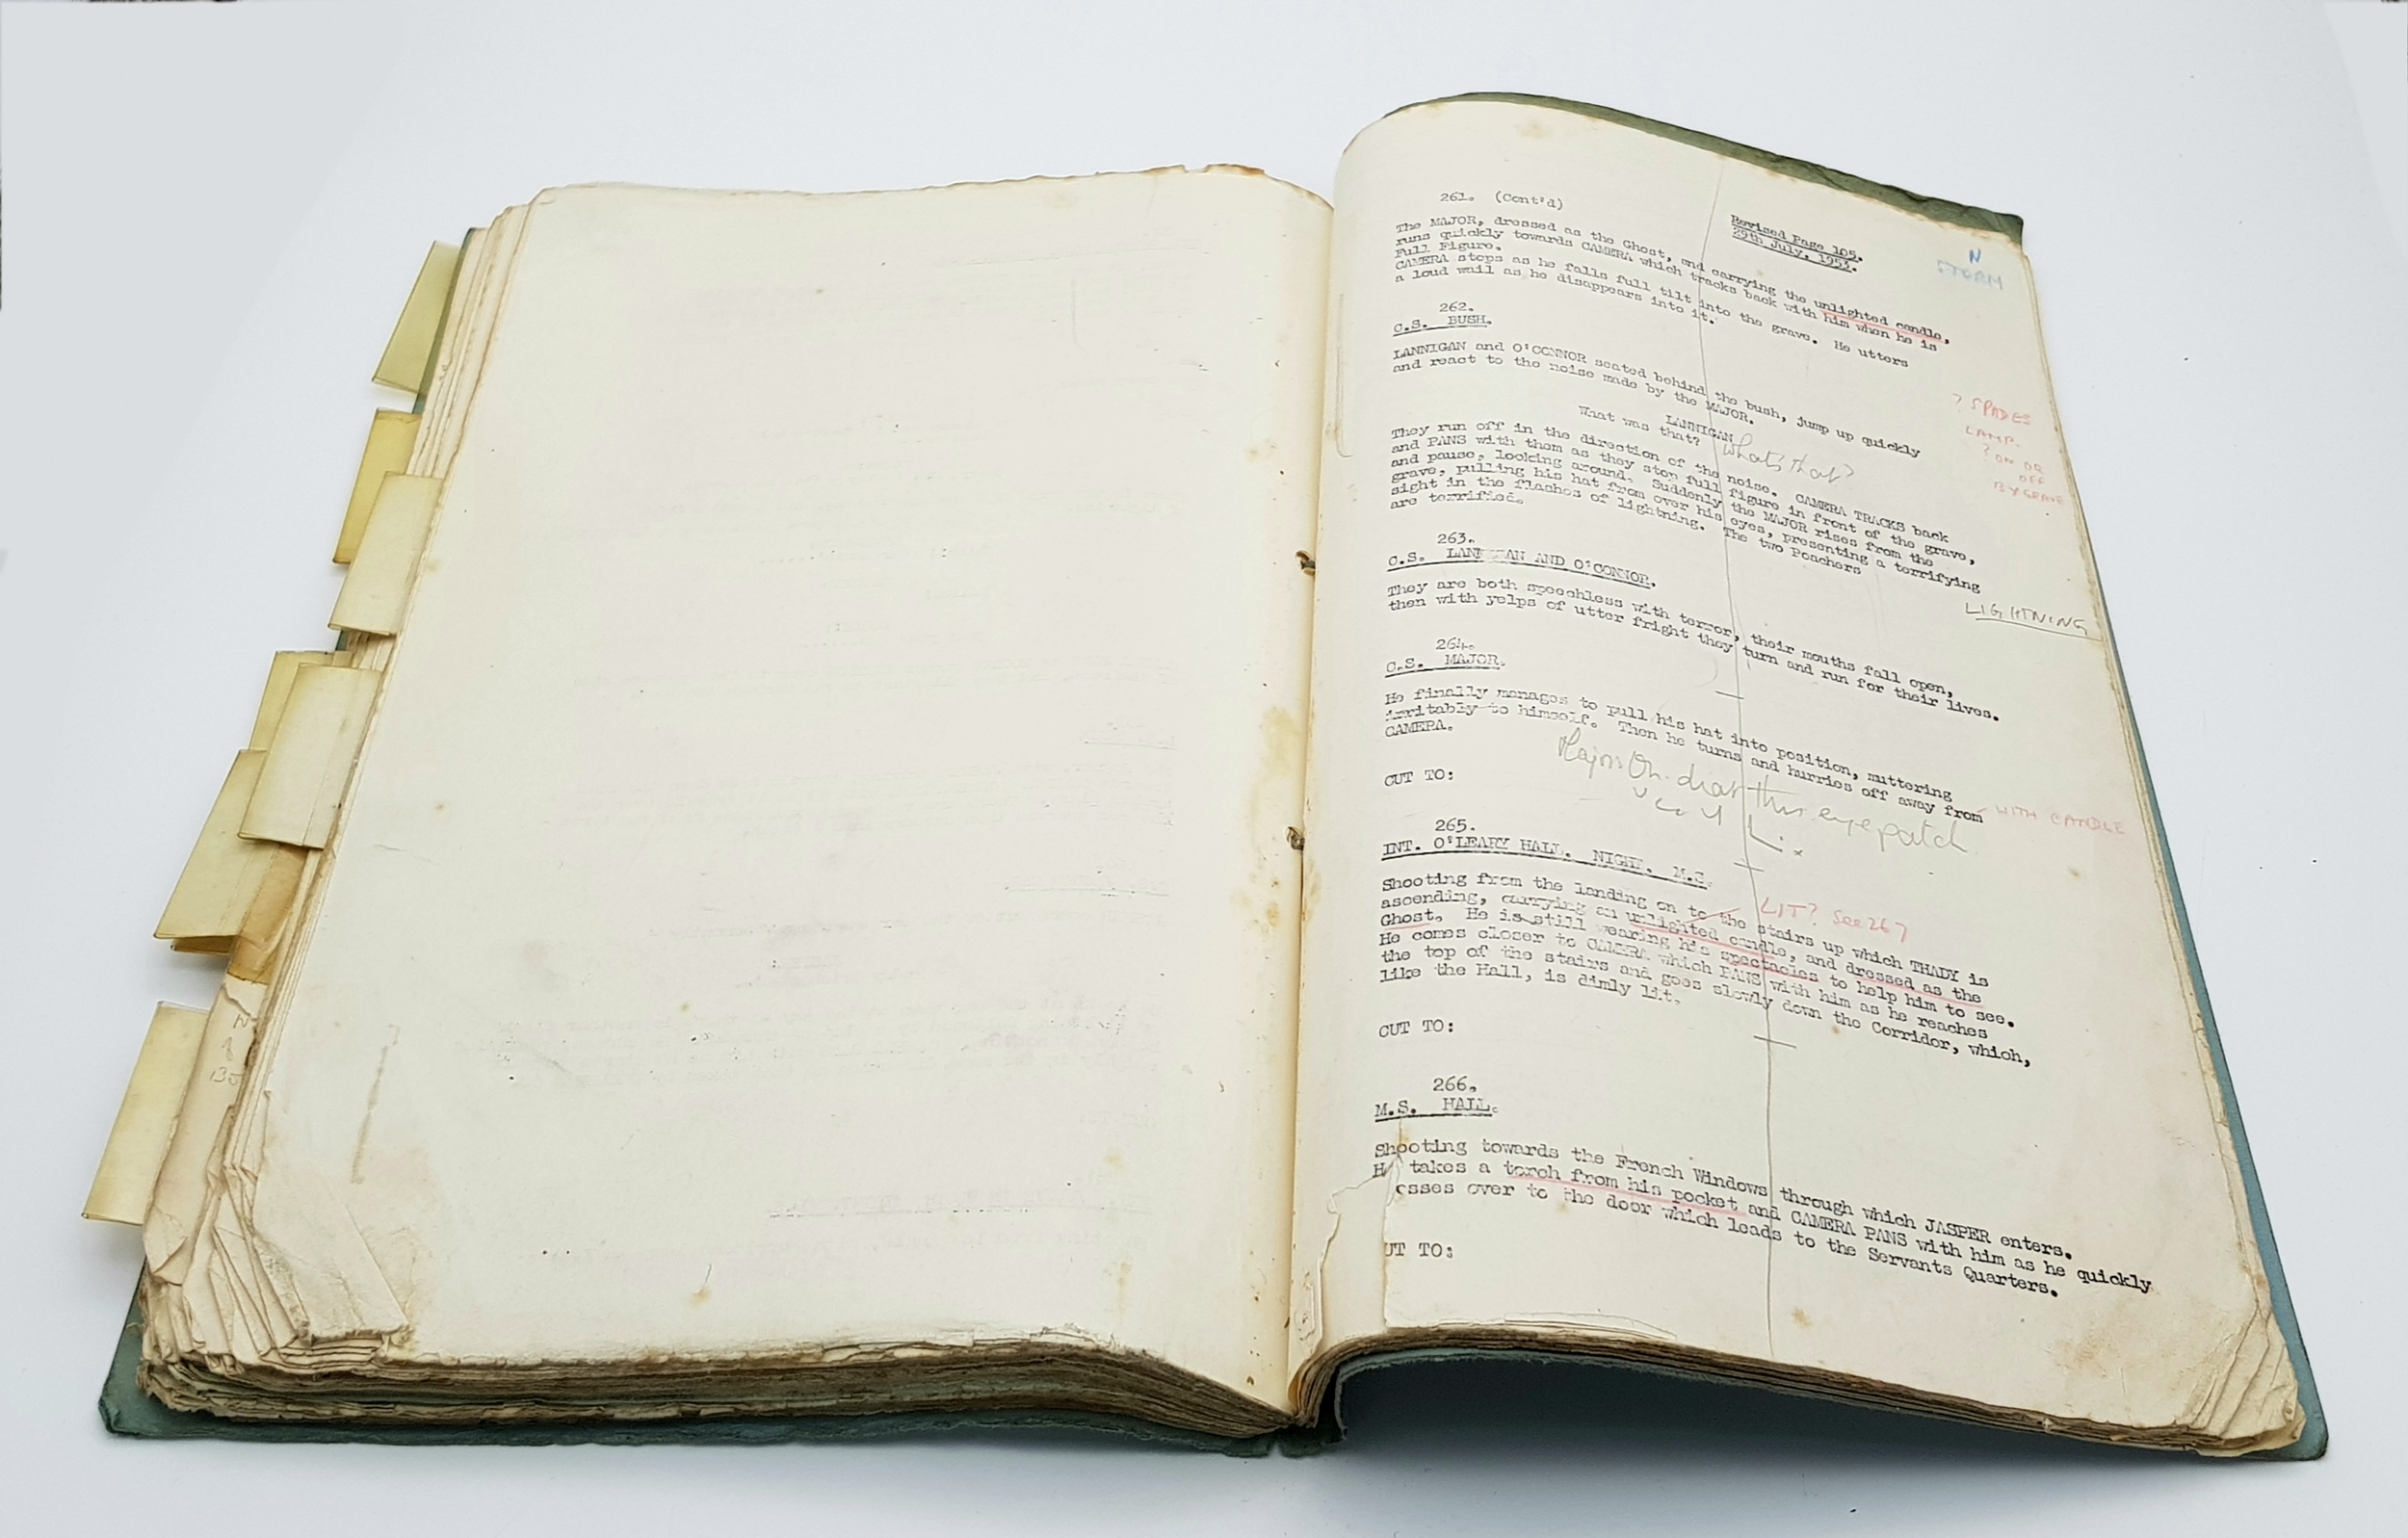 261. (Cont'd)
Revised Page 105.
29th July, 1953.
N
STORM
The MAJOR, dressed as the Ghost, and carrying the unlighted candle,
runs quickly towards CAMERA which tracks back with him when he is
Full Figure.
CAMERA stops as he falls full tilt into the grave. He utters
a loud wail as he disappears into it.
262.
C.S. BUSH.
LANNIGAN and O'CONNOR seated behind the bush, jump up quickly
and react to the noise made by the MAJOR.
? SPADES
LAMP.
? ON OR
OFF
BY GRAVE
LANNIGAN
What was that?
What's that?
They run off in the direction of the noise. CAMERA TRACKS back
and PANS with them as they stop full figure in front of the grave,
and pause, looking around. Suddenly the MAJOR rises from the
grave, pulling his hat from over his eyes, presenting a terrifying
sight in the flashes of lightning. The two Poachers
are terrified.
LIGHTNING
263.
C.S. LANNIGAN AND O'CONNOR.
They are both speechless with terror, their mouths fall open,
then with yelps of utter fright they turn and run for their lives.
264.
C.S. MAJOR.
He finally manages to pull his hat into position, muttering
irritably to himself. Then he turns and hurries off away from
CAMERA.
WITH CANDLE
eye patch
CUT TO:
265.
INT. O'LEARY HALL. NIGHT. M.S.
LIT? See 267
Shooting from the landing on to the stairs up which THADY is
ascending, carrying an unlighted candle, and dressed as the
Ghost. He is still wearing his spectacles to help him to see.
He comes closer to CAMERA which PANS with him as he reaches
the top of the stairs and goes slowly down the Corridor, which,
like the Hall, is dimly lit.
CUT TO:
266.
M.S. HALL.
Shooting towards the French Windows through which JASPER enters.
H takes a torch from his pocket and CAMERA PANS with him as he quickly
osses over to the door which leads to the Servants Quarters.
UT TO: